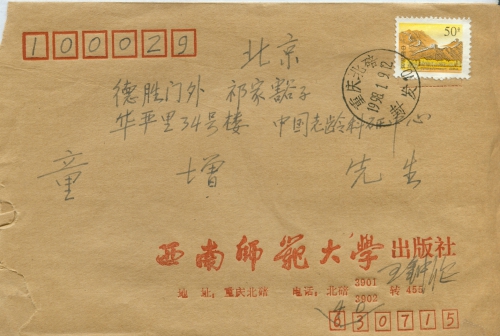 100029
北京
50分
重庆北碚
1998.1.9.12
德胜门外 祁家豁子
华严里34号楼 中国老龄科研中心
童增 先生
西南师范大学出版社
地 址：重庆北碚 电话：北碚 3901 转 455
3902
630715